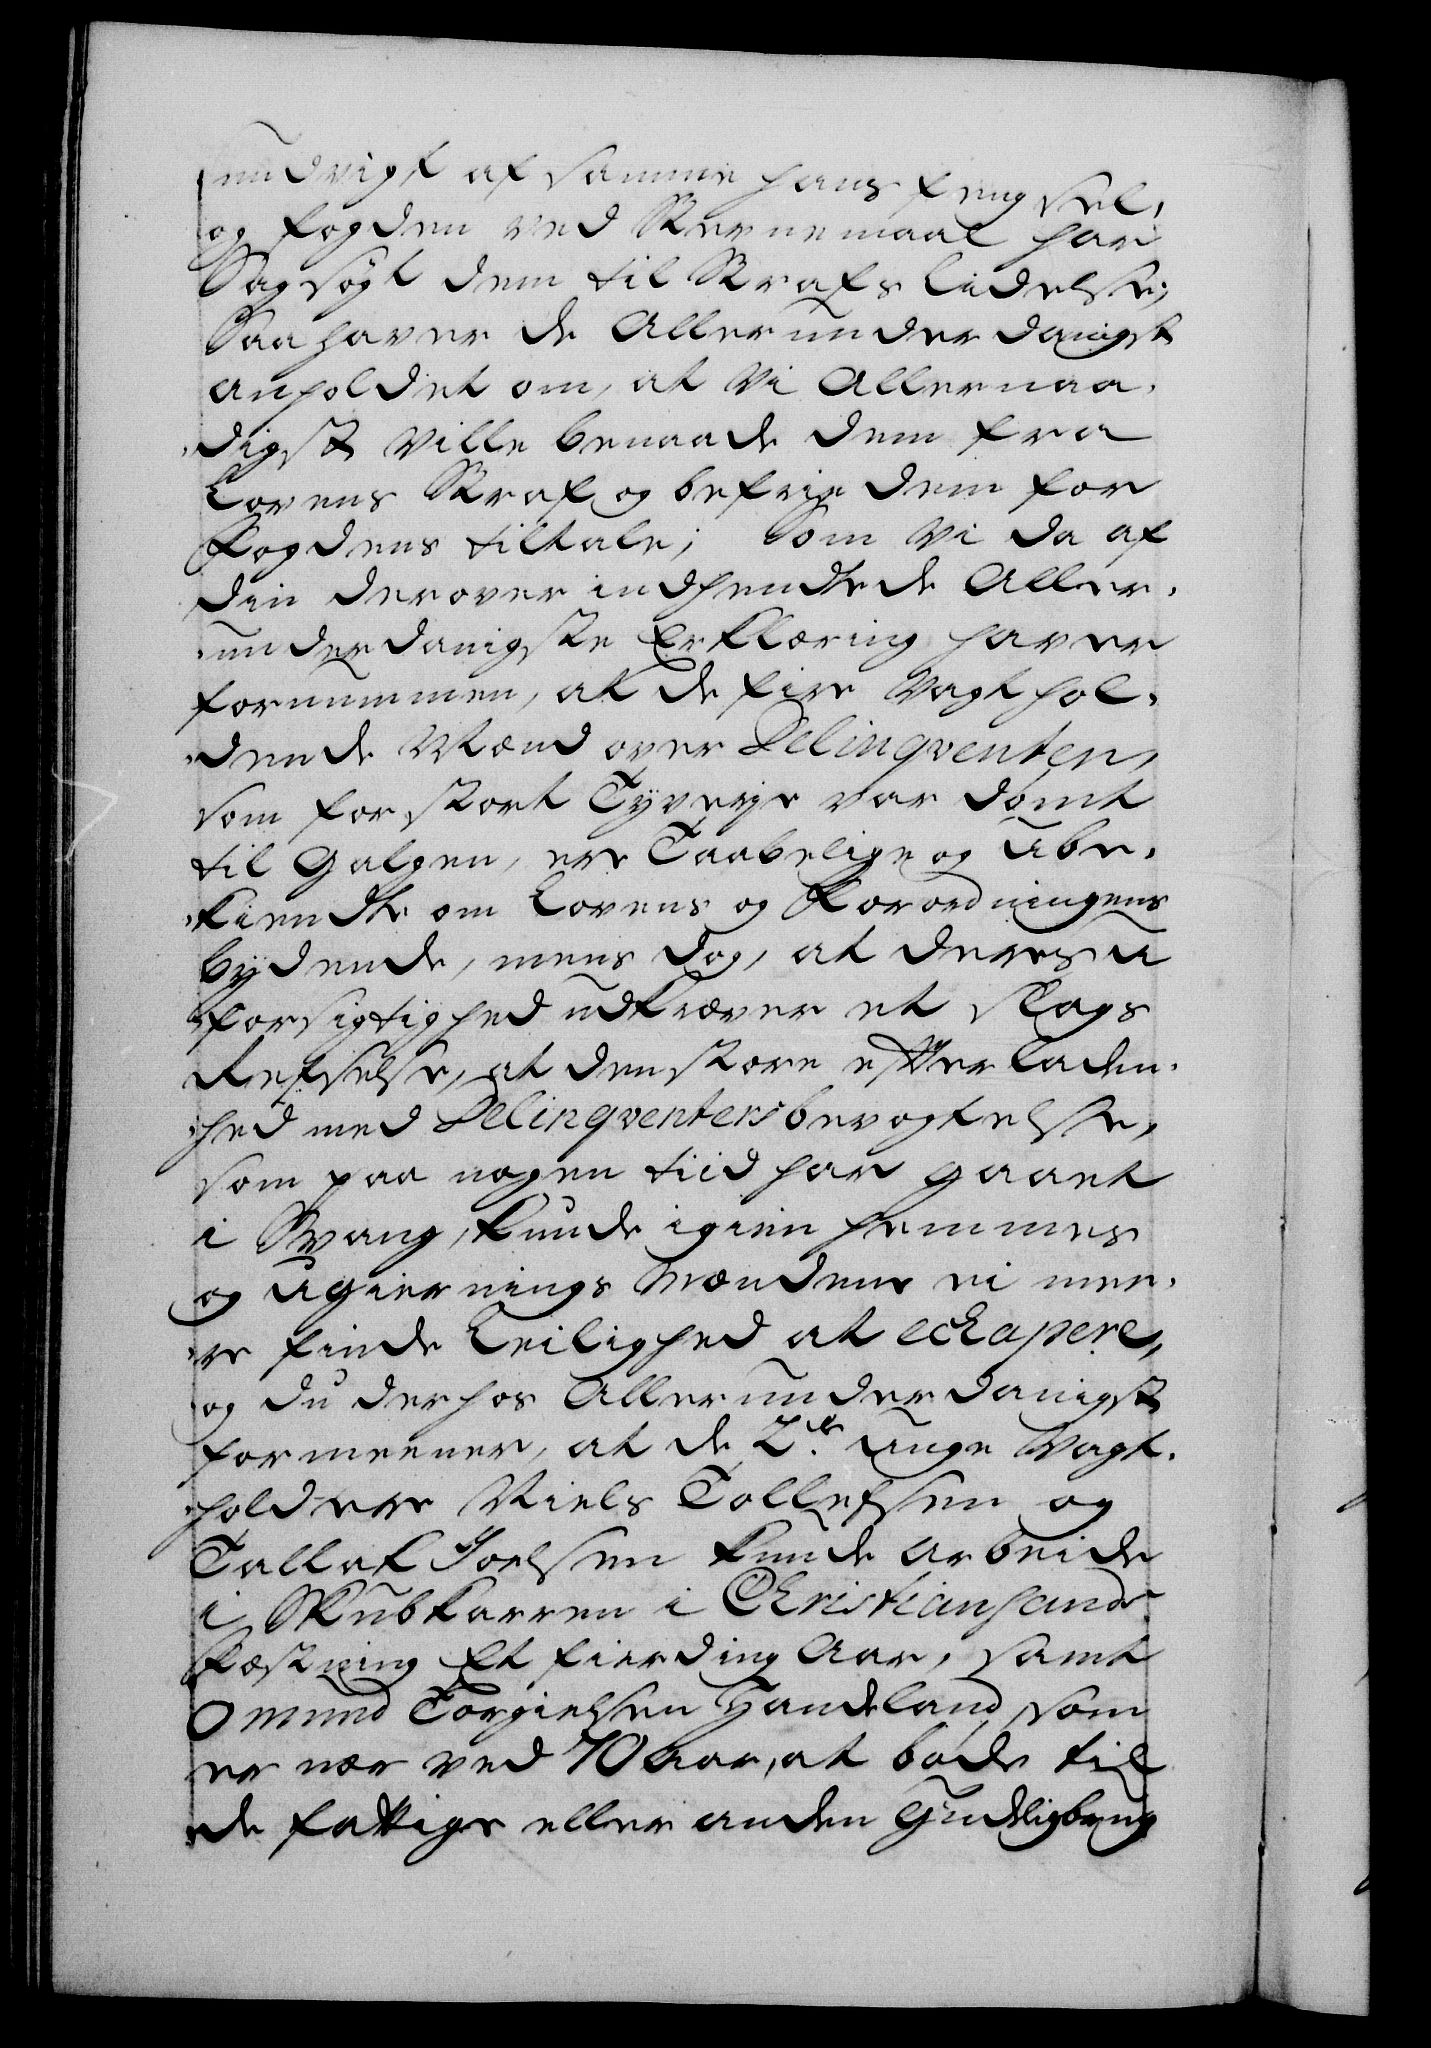 undvigt af samme hans fengsel,
og fogden ved Stevnemaal har
Sagsögt dem til Strafs lidelse;
Saa haver de Allerunderdanigst
anholdet om, at Vi Allernaa-
digst Ville benaade dem fra
Lovens Straf og befrie dem for
Fogdens tiltale; Som Vi da af
din derover indhendtede Aller-
underdanigste Erklæring haver
fornummen, at de fire Vagthol-
dende Mænd over Delinqventen,
som for stort Tyverje var dömt
til Galgen, ere Taabelige og Ube-
kiendte om Lovens og Forordningens
bydende, mens dog, at deres U
forsigtighed udkræver et slags
Refselse, at den store efterladen-
hed med Delinqventers bevogtelse,
som paa nogen tiid har gaaet
i Svang, kunde igien hemmes
og Ugiernings Mændene ei mee-
re finde Leilighed at echapere,
og du derhos Allerunderdanigst
formeener, at de 2de unge Vagt-
holdere Niels Tollefsen og
Tallak Joelsen kunde arbeide
i Skubkarren i Christiansands
Fæstning Et fierding Aar, samt
Omund Torgielsen Handeland, som
er nær ved 70 Aar, at böde til
de fattige eller anden Gudeligbrug